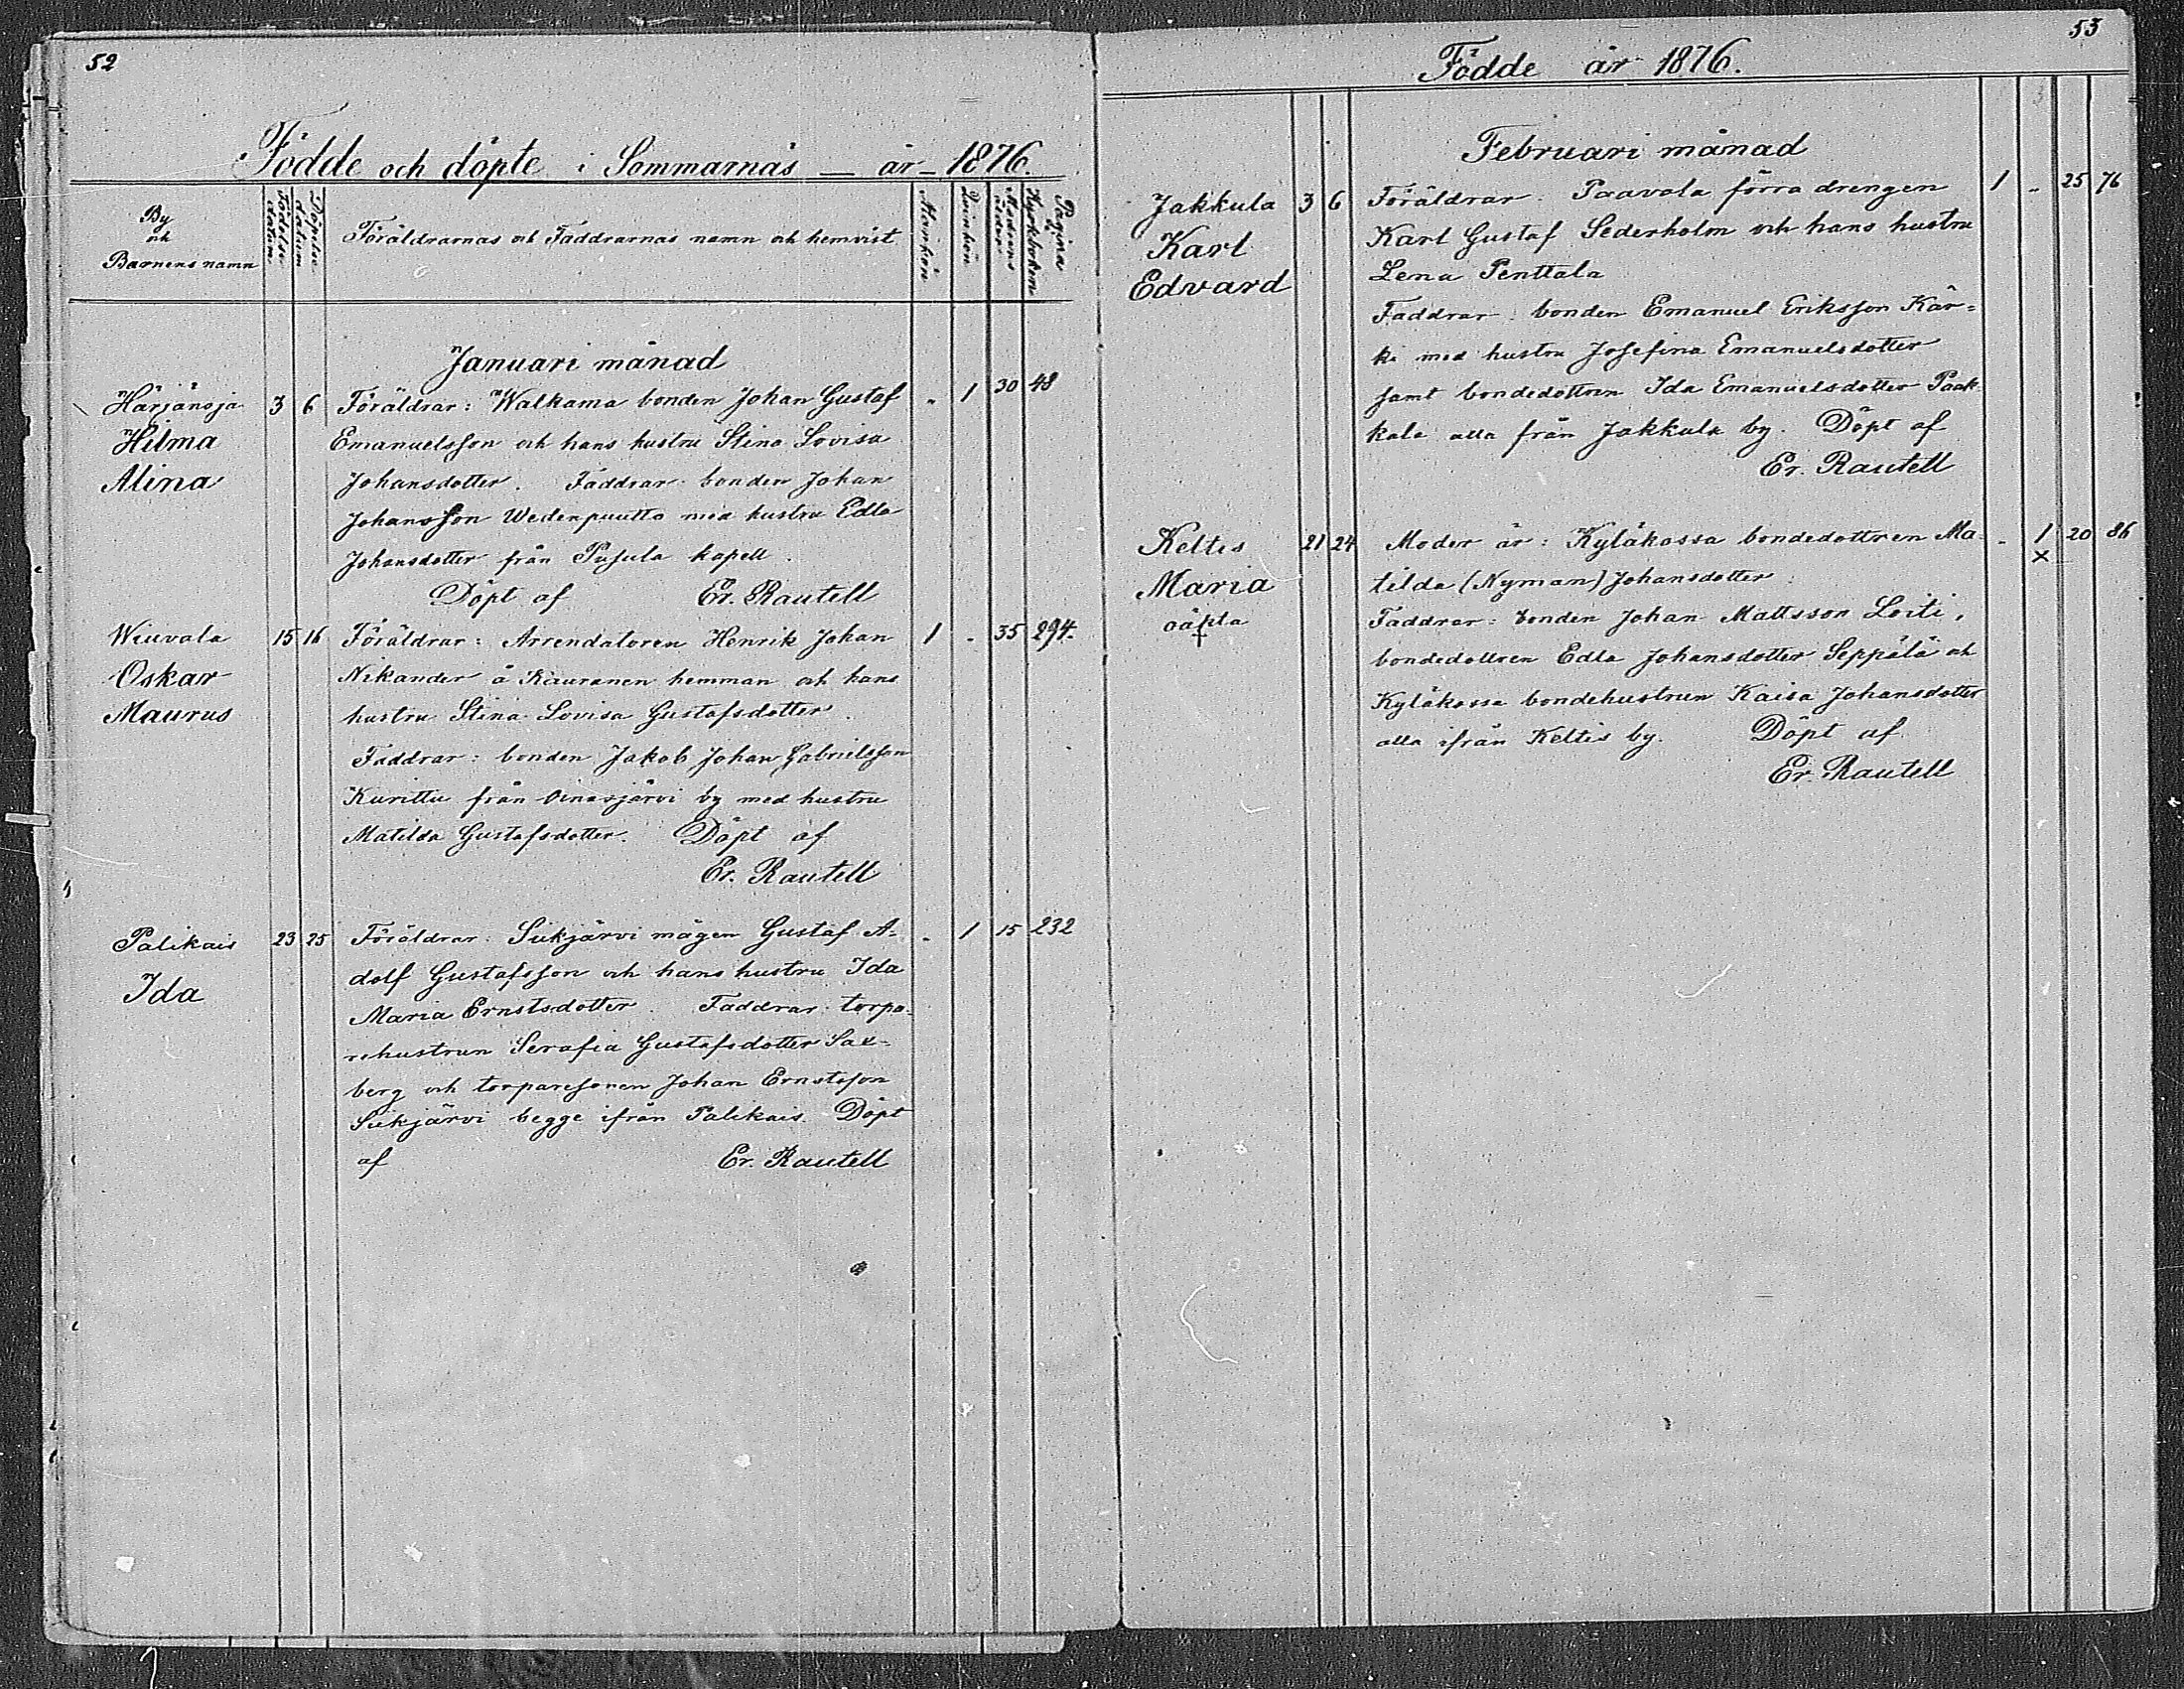 52
Födde och döpte i Sommarnäs — år — 1876.
By
och
Barnens namn
Födelse datum
Döpelse datum
Föräldrarnas och Faddrarnas namn och hemvist
Mankön
Qvinkön
Modrens ålder
Pagina i Kyrkoboken
Januari månad
Härjänoja 3 6 Föräldrar: Walkama bonden Johan Gustaf „ 1 30 48
Hilma Emanuelsson och hans hustru Stina Lovisa
Alina Johansdotter. Faddrar bonden Johan
Johansson Wedenpuutto med hustru Edla
Johansdotter från Pusula kapell.
Döpt af Er. Rautell
Wiuvala 15 16 Föräldrar: Arrendatoren Henrik Johan 1 „ 35 294.
Oskar Nikander å Rauranen hemman och hans
Maurus hustru Stina Lovisa Gustafsdotter.
Faddrar: bonden Jakob Johan Gabrielsson
Kurittu från Oinasjärvi by med hustru
Matilda Gustafsdotter. Döpt af
Er. Rautell
Palikais 23 25 Föräldrar: Siikjärvi mågen Gustaf A= „ 1 15 232
Ida dolf Gustafsson och hans hustru Ida
Maria Ernstsdotter. Faddrar torpa-
rehustrun Serafia Gustafsdotter Sax-
berg och torparesonen Johan Ernstsson
Siikjärvi begge ifrån Palikais. Döpt
af Er. Rautell
53
Födde år 1876.
Februari månad
Jakkula 3 6 Föräldrar. Paavola förra drengen 1 „ 25 76
Karl Karl Gustaf Sederholm och hans hustru
Edvard Lena Penttala
Faddrar: bonden Emanuel Eriksson Kär=
ki med hustru Josefina Emanuelsdotter
samt bondedottren Ida Emanuelsdotter Paak
kala alla från Jakkula by. Döpt af
Er. Rautell
Keltis 21 24 Moder är: Kyläkossa bondedottren Ma- „ 1 20 86
Maria tilda (Nyman) Johansdotter. ×
oäkta Faddrar: bonden Johan Mattsson Loiti,
† bondedottren Edla Johansdotter Seppälä och
Kyläkossa bondehustrun Kaisa Johansdotter
alla ifrån Keltis by. Döpt af
Er. Rautell